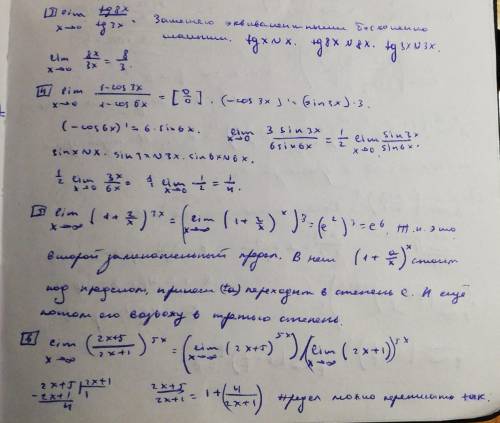 3) lim x→0 tg8x/tg3x. Заменяю эквивалентными бесконечно
малыми. tgx ~ x. tg8x ~ 8x. tg3x ~ 3x.
lim x→0 8x/3x = 8/3.
4) lim x→0 (1-cos3x)/(1-cos6x) = [0/0]. (-cos3x)' = (sin3x)·3.
(-cos6x)' = 6·sin6x. lim x→0 3sin3x/6sin6x = 1/2 lim x→0 sin3x/sin6x.
sinx ~ x. sin3x ~ 3x. sin6x ~ 6x.
1/2 lim x→0 3x/6x = 1/2 lim x→0 1/2 = 1/4.
5) lim x→∞ (1+2/x)^3x = (lim x→∞ (1+2/x)^x)^3 = (e^2)^3 = e^6. Т.к. это
второй замечательный предел. В нем (1+a/x)^x стоит
под пределом, причем (a) переходит в степень e. И ещё
потом его возвожу в третью степень.
6) lim x→∞ ((2x+5)/(2x+1))^5x = (lim x→∞ (2x+5)^5x)/(lim x→∞ (2x+1))^5x
2x+5 | 2x+1
- 2x+1 | 1
4
(2x+5)/(2x+1) = 1+(4/(2x+1)) предел можно переписать так.